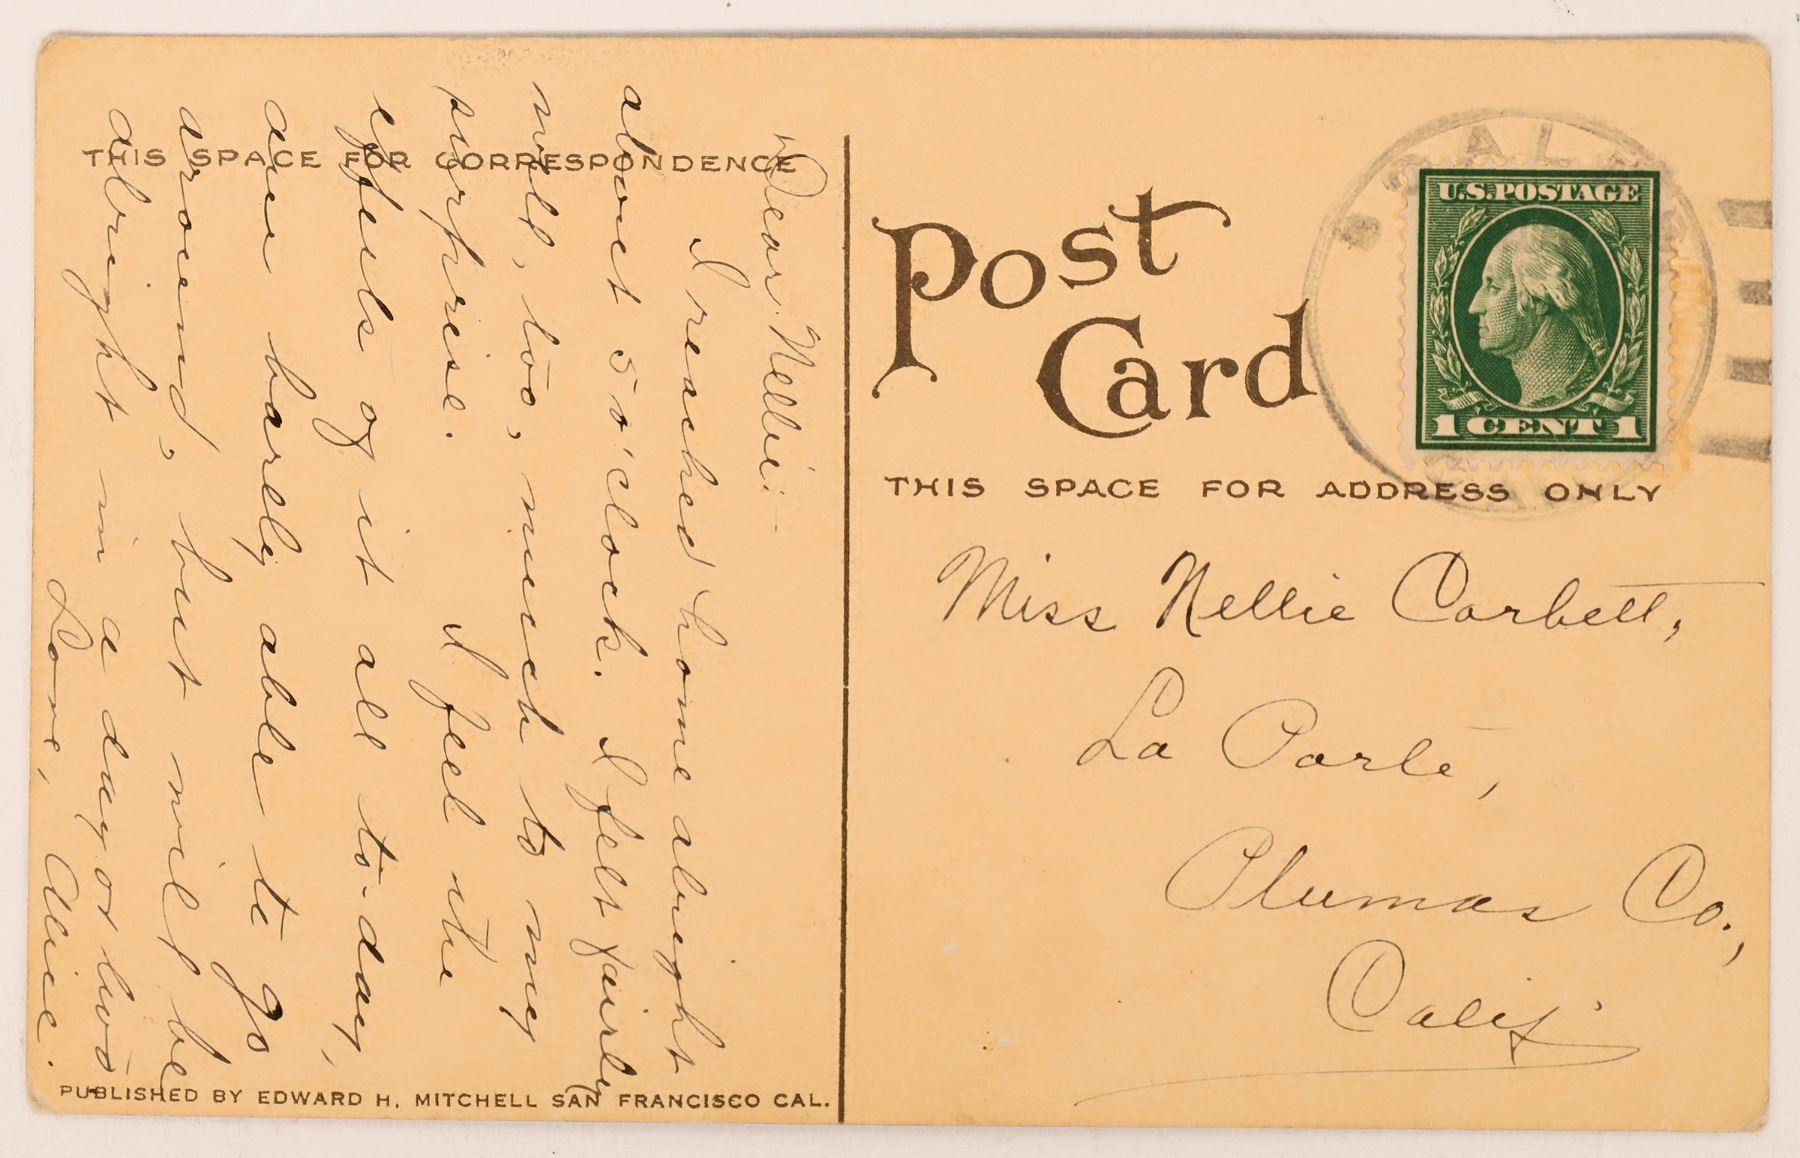 THIS SPACE FOR CORRESPONDENCE
Dear Nellie:-
I reached home alright
about 5 o'clock. I felt fairly
well, too, much to my
surprise. I feel the
effects of it all to-day,
am barely able to go
around, but will be
alright in a day or two.
Love, Alice.
PUBLISHED BY EDWARD H. MITCHELL SAN FRANCISCO CAL.
Post
Card
CAL
U.S. POSTAGE
1 CENT 1
THIS SPACE FOR ADDRESS ONLY
Miss Nellie Corbett,
La Porte,
Plumas Co.,
Calif